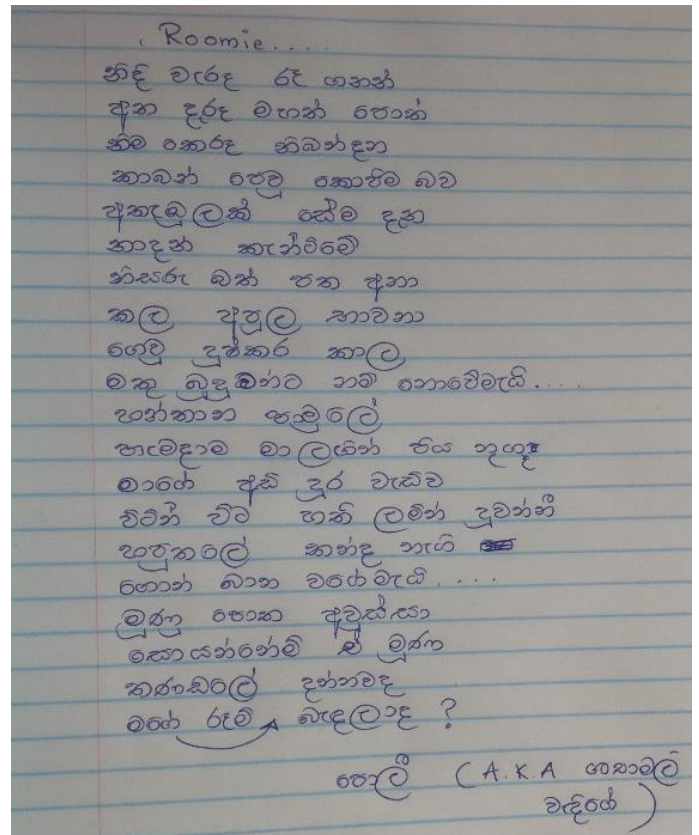 Roomie....
නිදි වැරූ රෑ ගනන්
අත දැරූ මහත් පොත්
නිම කෙරූ නිබන්දන
කාබන් පෙවු කොපිම බව
අතැඹුලක් සේම දැන
කාදන් කැන්ටිමේ
නිසරු බත් පත අනා
කල අපුල භාවනා
ගෙවු දුෂ්කර කාල
මතු බුදු වන්ට නම් නොවේමැයි....
හන්තාන පාමුලේ
හැමදාම මාලයින් පිය නුගූ
මාගේ අඩි දුර වැඩිව
විටින් විට හති ලමින් දුවන්නී
හපුතලේ කන්ද නැගි
ගොන් බාන වගේමැයි....
මූණු පොත අවුස්සා
සොයන්නෙමි ඒ මූණ
කණඩලේ දන්නවද
මගේ රූමි බැඳලාද ?
පොලී (A.K.A
වැදිගේ)